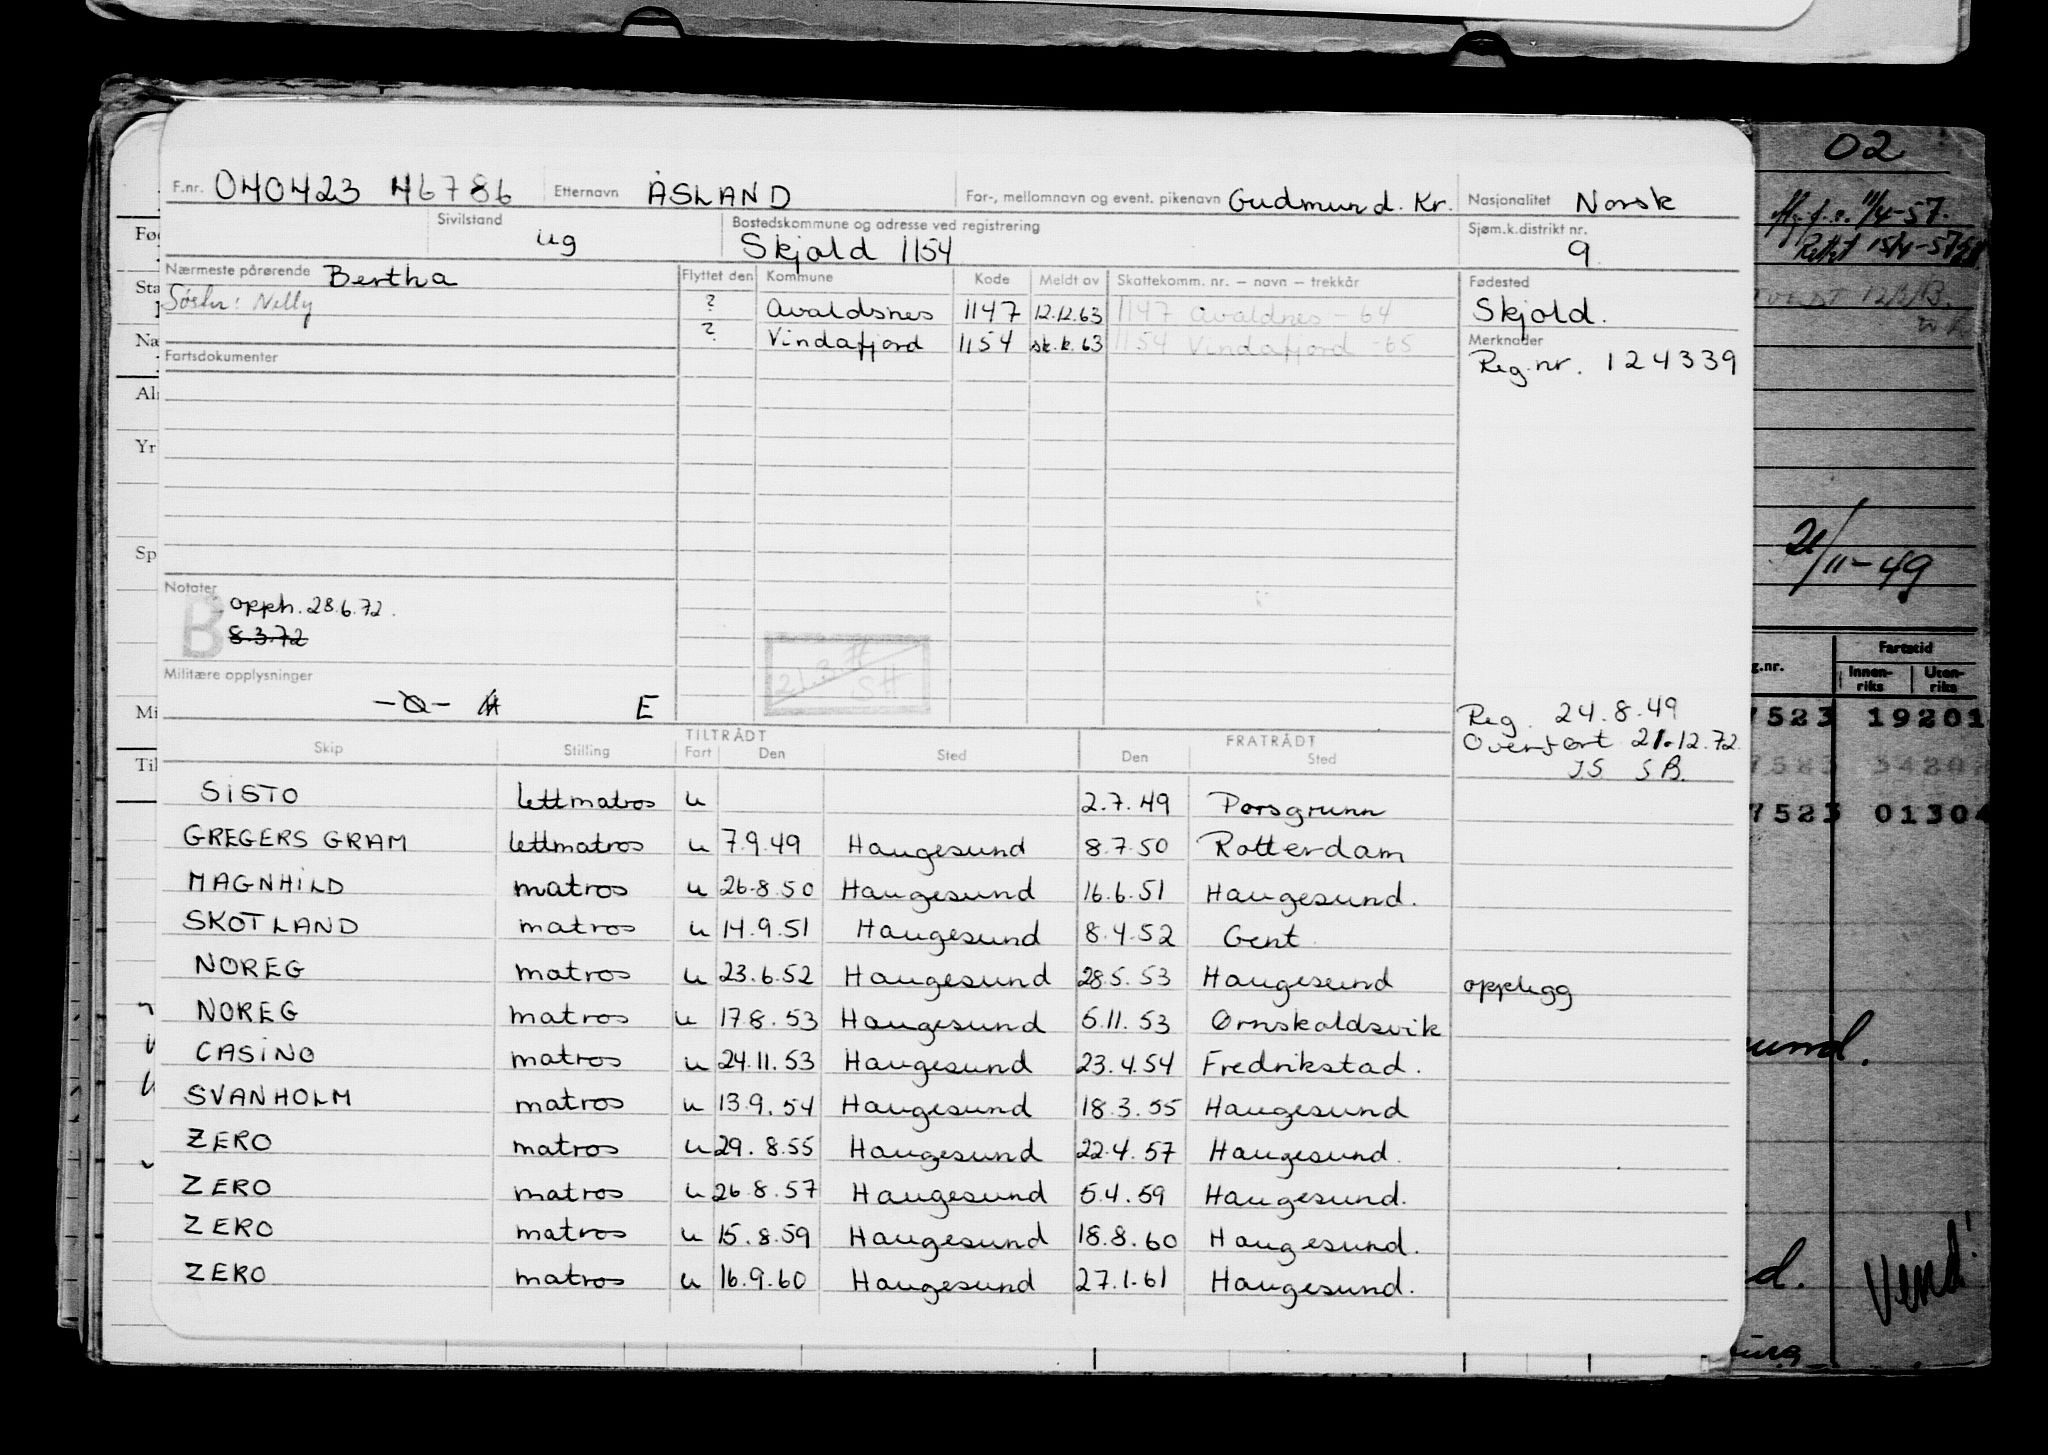 02
F.nr. 040423 46786 Etternavn ÅSLAND For-, mellomnavn og event. pikenavn Gudmund. Kr. Nasjonalitet Norsk
Sivilstand ug Bostedskommune og adresse ved registrering Skjold 1154 Sjøm.k.distrikt nr. 9.
Nærmeste pårørende Bertha Flyttet den Kommune Kode Meldt av Skattekomm. nr. – navn – trekkår Fødested
Søster: Nelly ? Avaldsnes 1147 12.12.63 1147 Avaldnes - 64 Skjold.
? Vindafjord 1154 sk.k. 63 1154 Vindafjord -65 Merknader
Fartsdokumenter Reg.nr. 124339
21/11-49
Notater
B opph. 28.6.72.
8.3.72
21.3.
Militære opplysninger
E
Reg. 24.8.49
Overført 21.12.72
JS SB.
TILTRÅDT FRATRÅDT
Skip Stilling Fart Den Sted Den Sted
SISTO lettmatros u 2.7.49 Porsgrunn
GREGERS GRAM lettmatros u 7.9.49 Haugesund 8.7.50 Rotterdam
MAGNHILD matros u 26.8.50 Haugesund 16.6.51 Haugesund.
SKOTLAND matros u 14.9.51 Haugesund 8.4.52 Gent
NOREG matros u 23.6.52 Haugesund 28.5.53 Haugesund opplegg
NOREG matros u 17.8.53 Haugesund 5.11.53 Ørnskoldsvik
CASINO matros u 24.11.53 Haugesund 23.4.54 Fredrikstad.
SVANHOLM matros u 13.9.54 Haugesund 18.3.55 Haugesund
ZERO matros u 29.8.55 Haugesund 22.4.57 Haugesund.
ZERO matros u 26.8.57 Haugesund 5.4.59 Haugesund.
ZERO matros u 15.8.59 Haugesund 18.8.60 Haugesund.
ZERO matros u 16.9.60 Haugesund 27.1.61 Haugesund.
Fartstid
g.nr. Innen-riks Uten-riks
7523 19201
7523 34202
7523 01304
Vend!